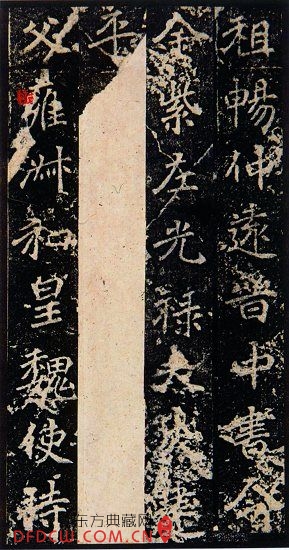 祖暢仲遠晉中書令
金紫左光祿大夫建
平
父雍淑和皇魏使持
东方典藏网
DFDCW.COM.CN